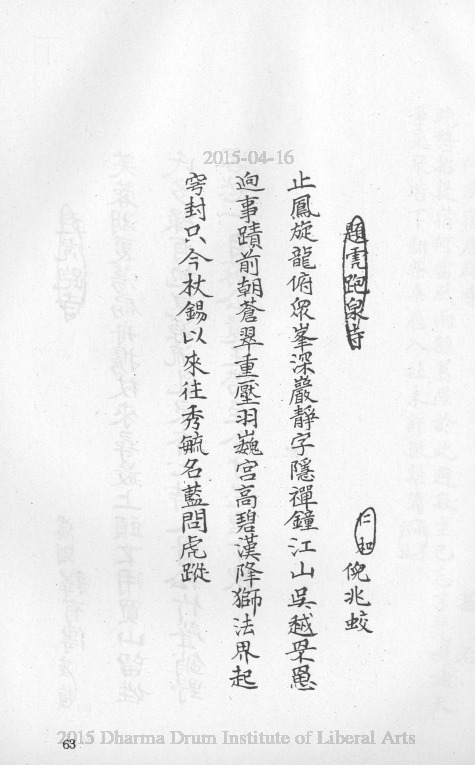 2015-04-16
題虎跑泉寺
仁和 倪兆蛟
止鳳旋龍俯眾峯深嚴靜字隱禪鐘江山吳越罘罳
逈事蹟前朝蒼翠重壓羽巍宮高碧漢降獅法界起
穹封只今杖錫以來往秀毓名藍問虎蹤
63
2015 Dharma Drum Institute of Liberal Arts